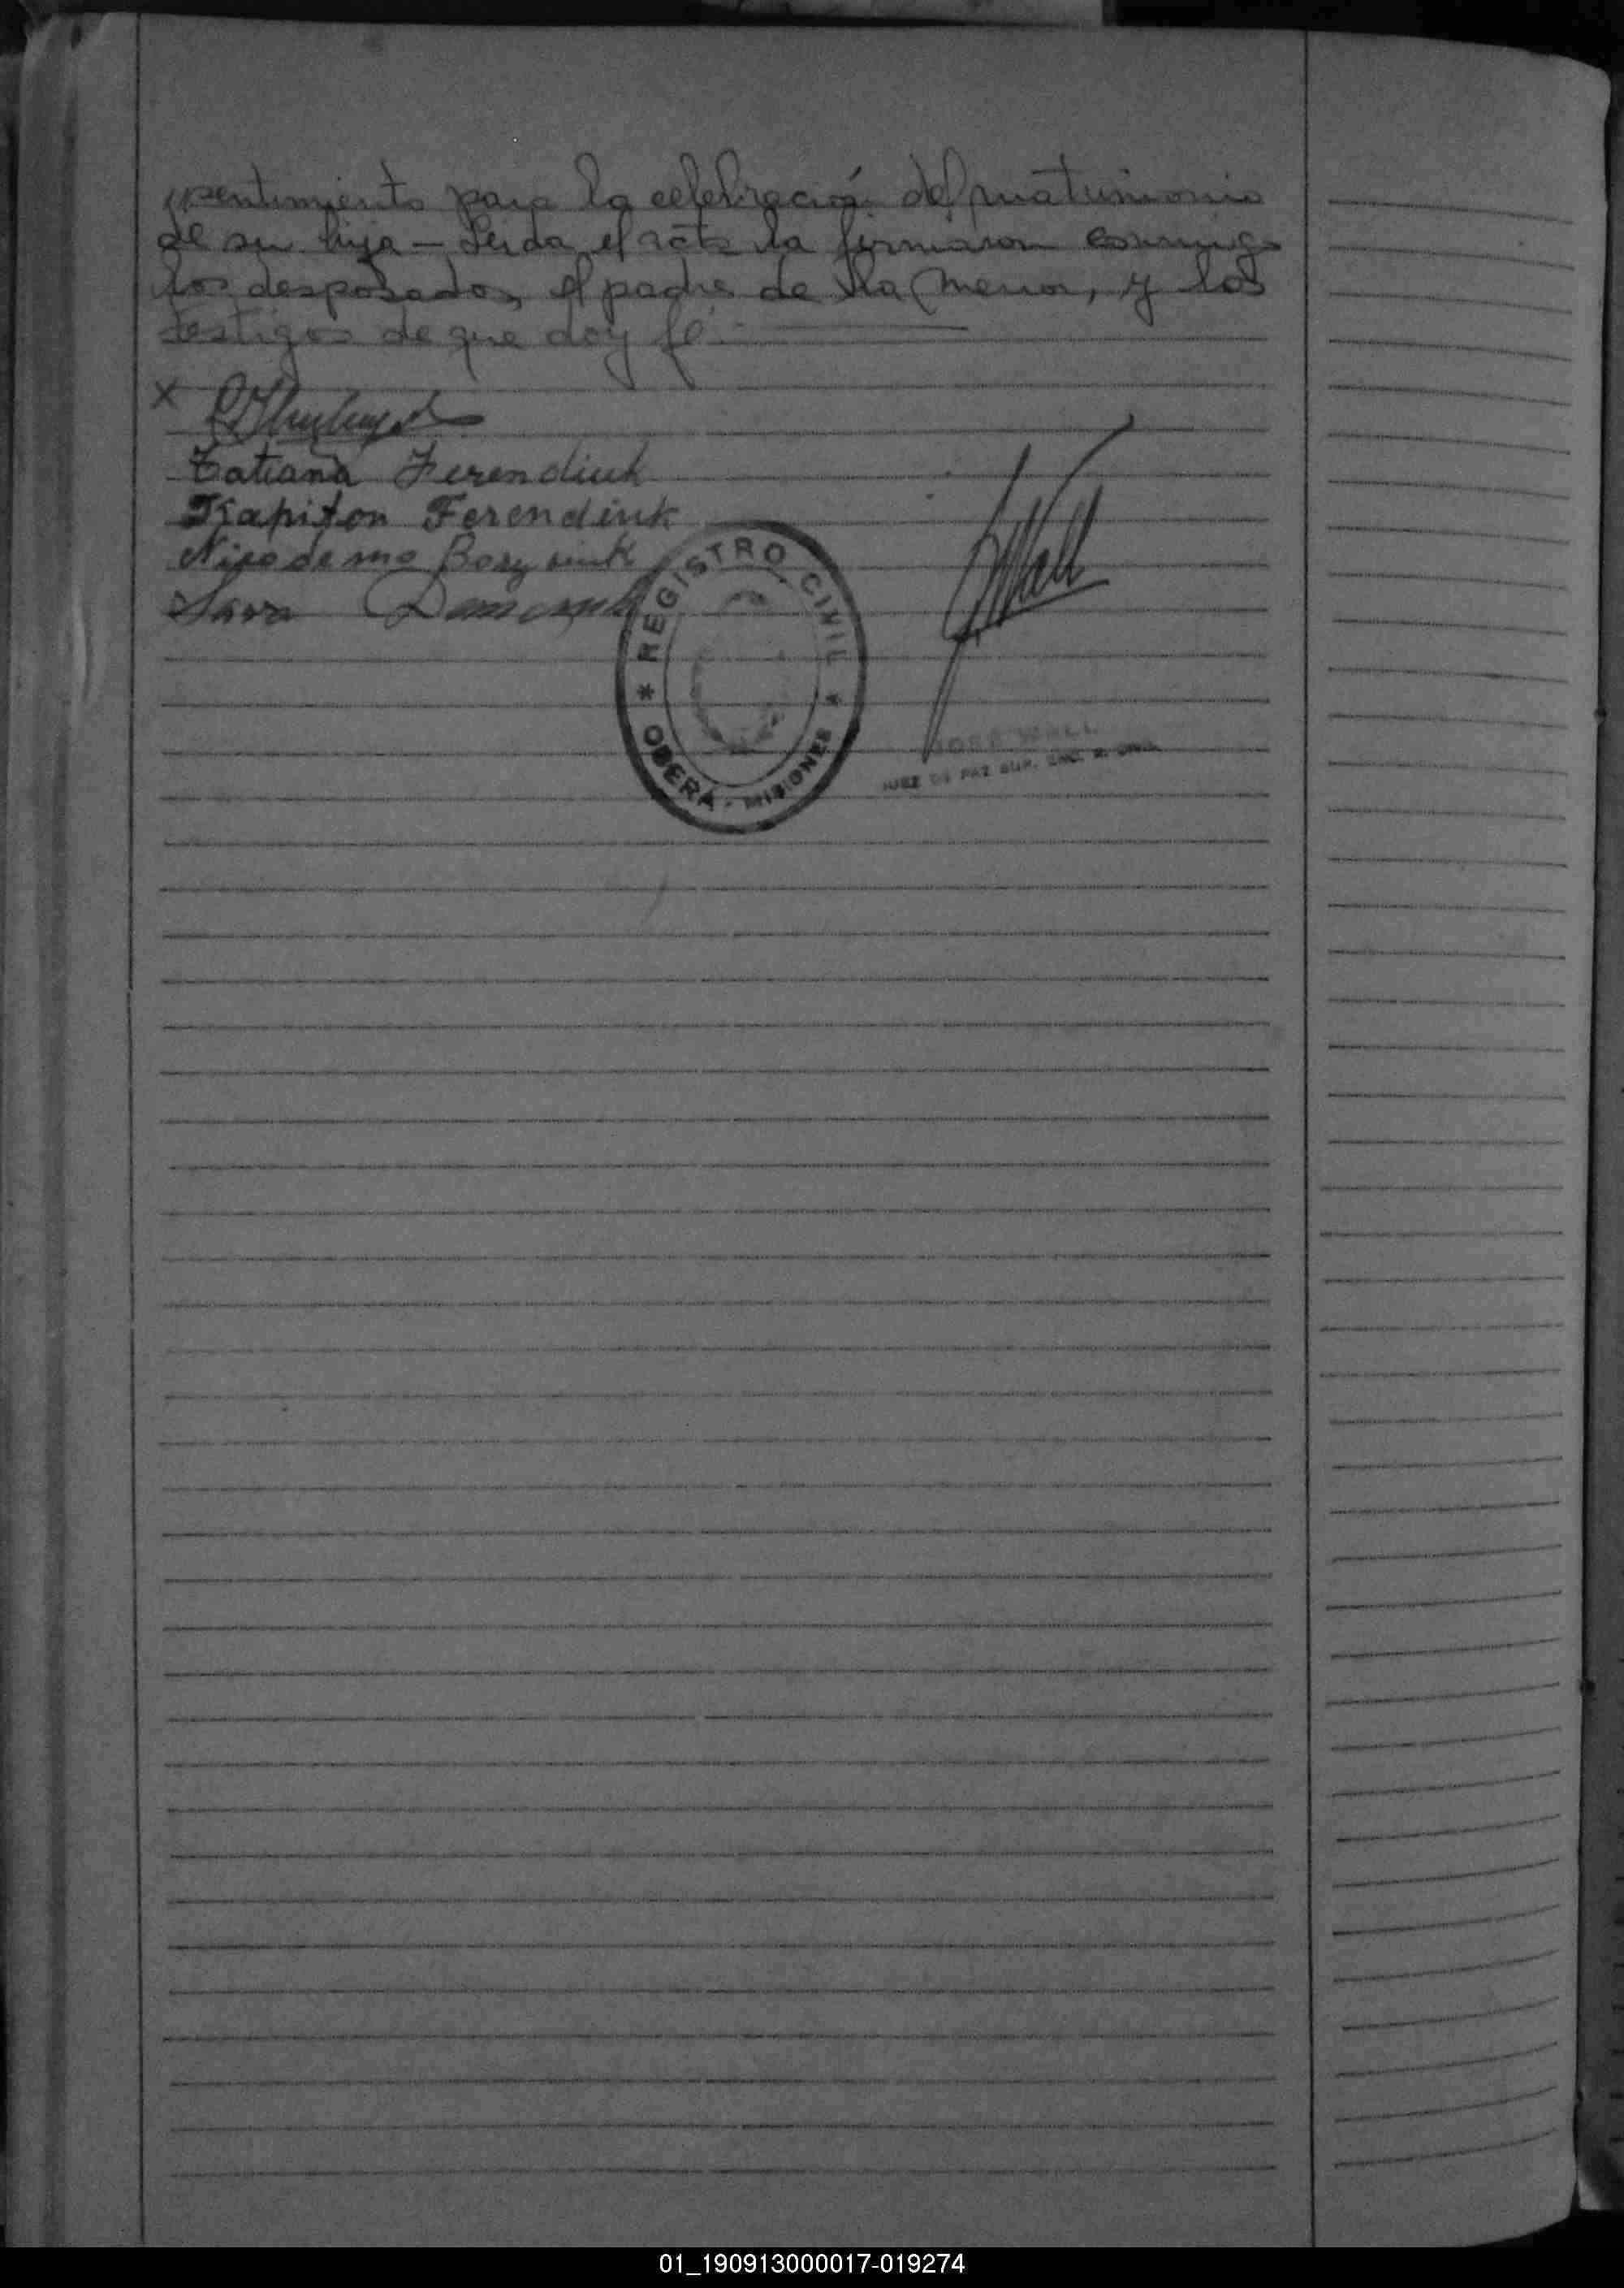 sentimiento para la celebración del matrimonio
de su hija – Leida el acta la firmaron conmigo
los desposados, el padre de la menor, y los
testigos de que doy fé.
x
Tatiana Ferendiuk
Kapiton Ferendiuk
Nicodemo Borysiuk
Sava
REGISTRO CIVIL
* OBERÁ - MISIONES *
JUEZ DE PAZ SUP. ENC. R. CIVIL
01_190913000017-019274